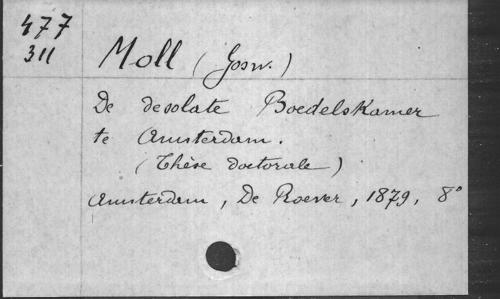 477
311
Moll (Josw.)
De desolate Boedelskamer
te Amsterdam.
(Thèse doctorale)
Amsterdam, De Roever, 1879, 8°